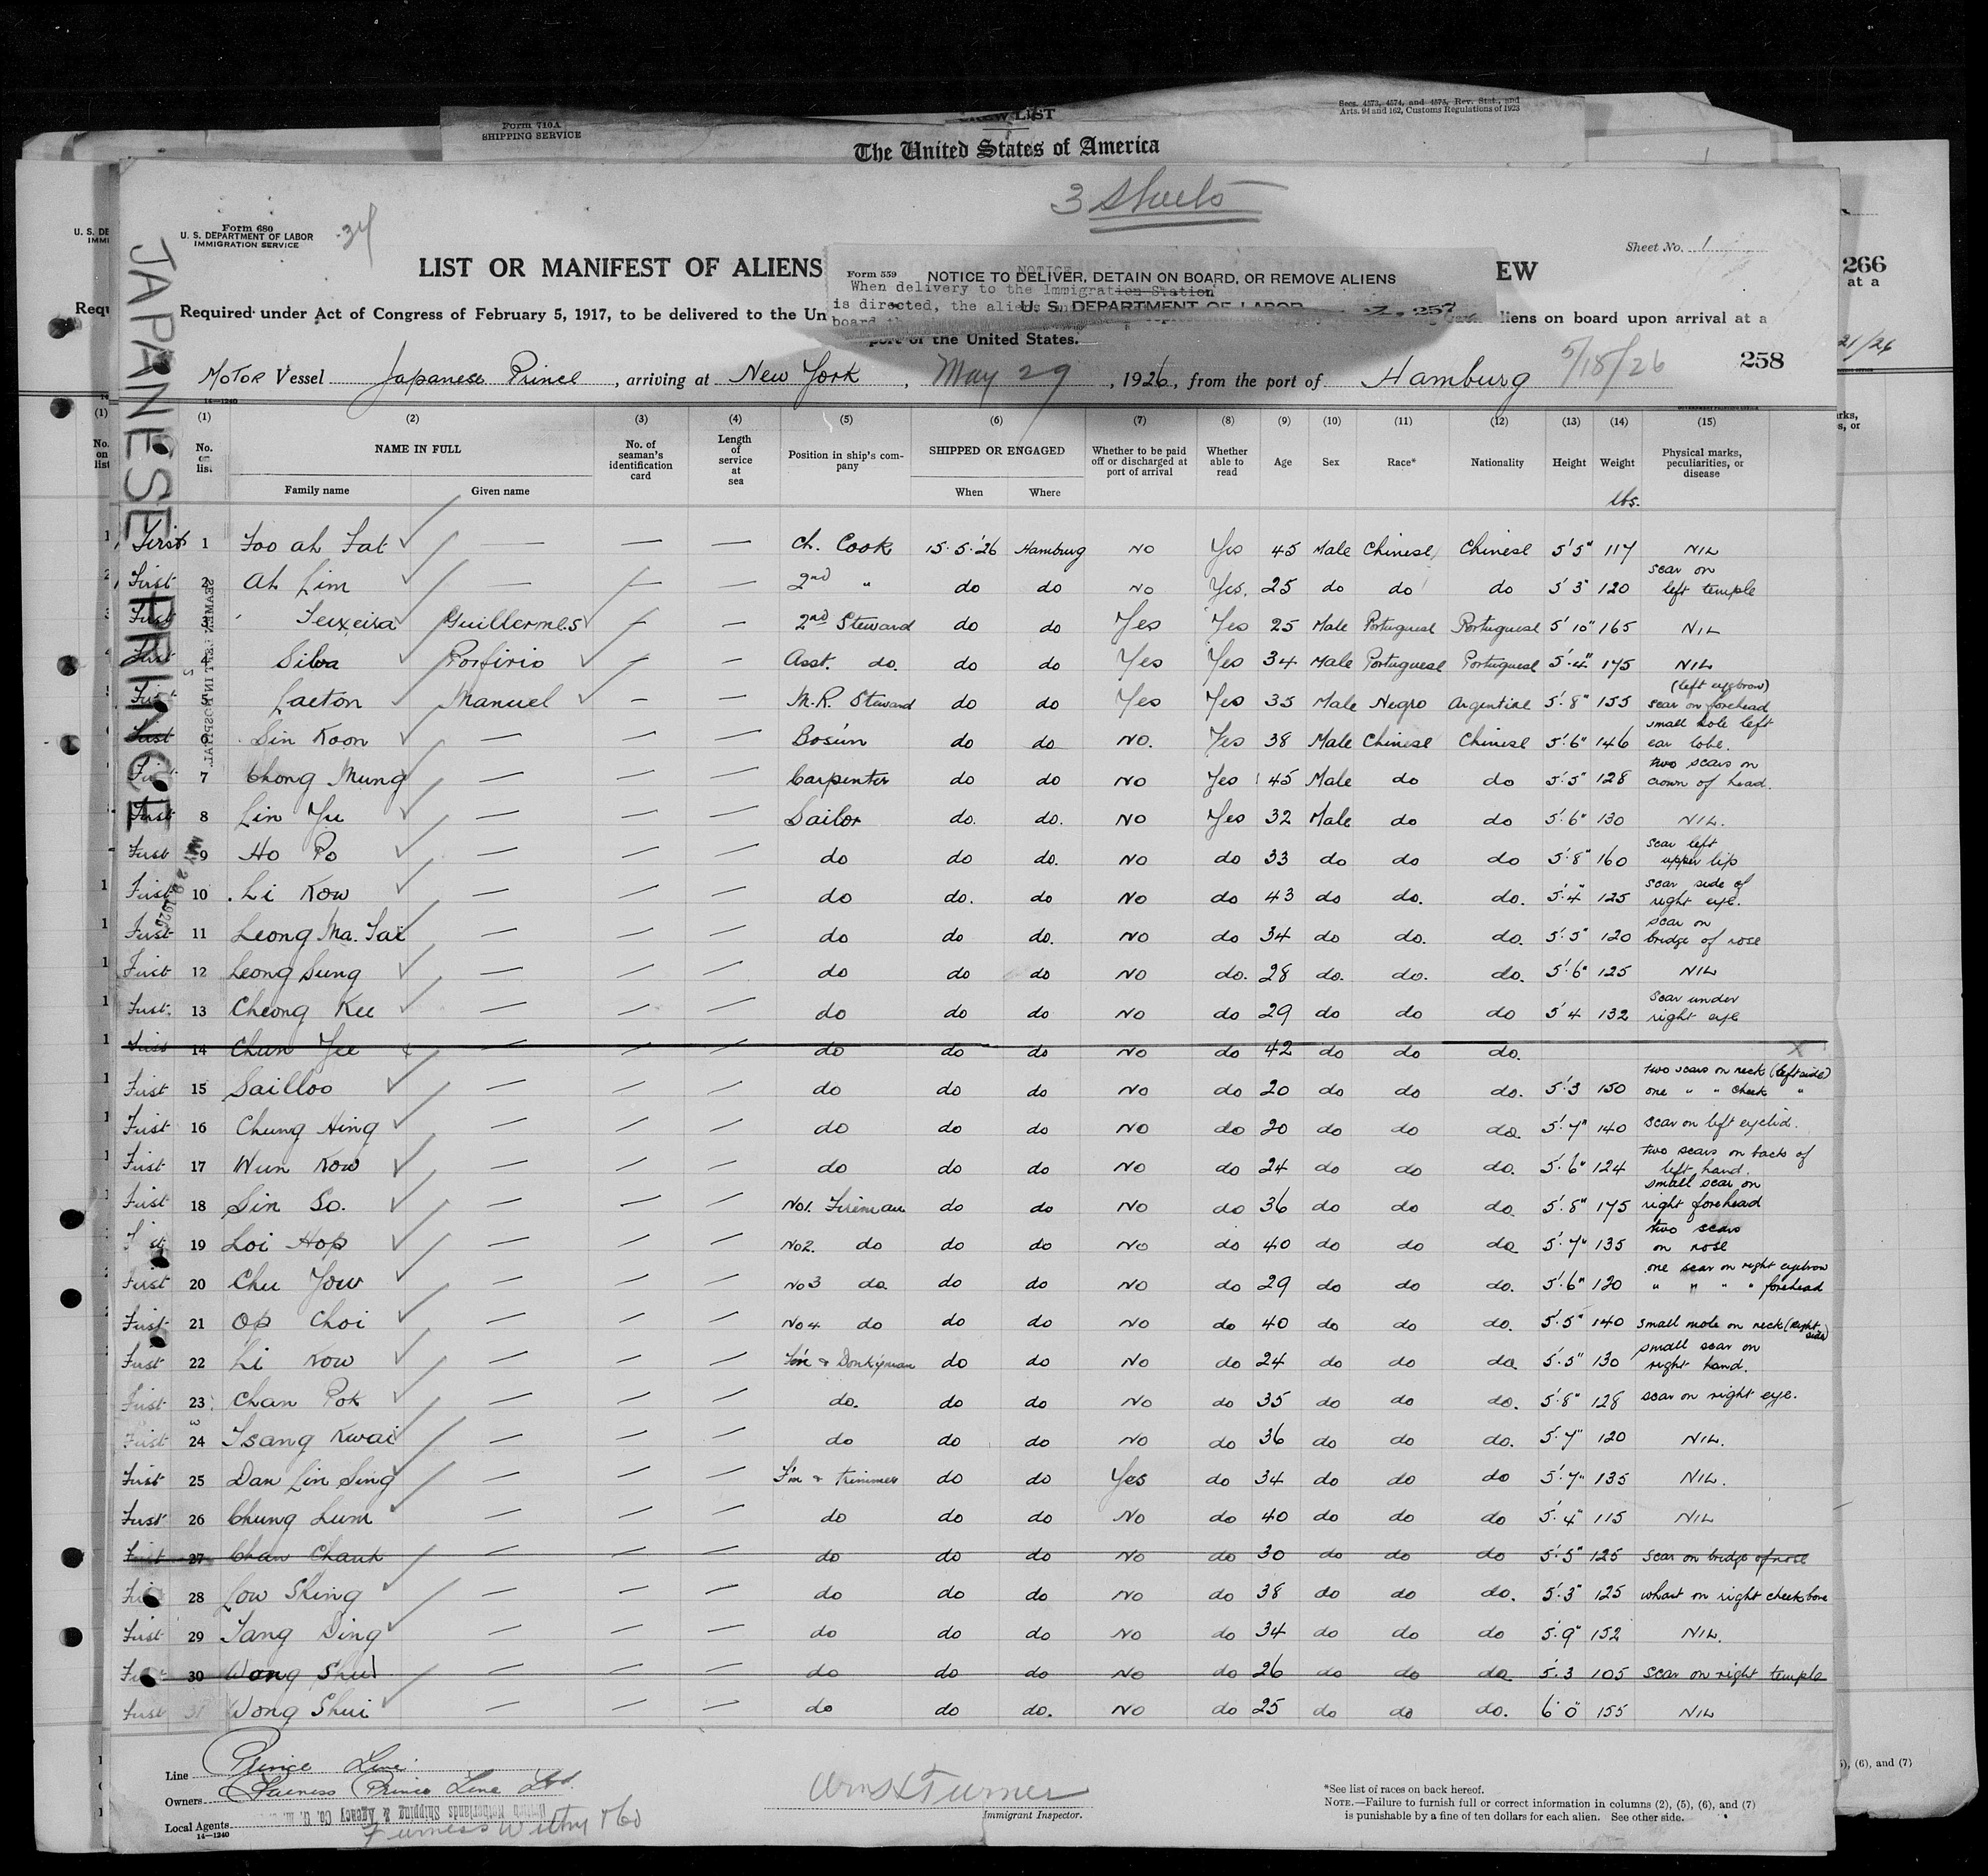 Form 710A
SHIPPING SERVICE
CREW LIST
The United States of America
Secs. 4573, 4574, and 4575, Rev. Stat., and
Arts. 94 and 162, Customs Regulations of 1923
3 Sheets
34
Form 680
U. S. DEPARTMENT OF LABOR
IMMIGRATION SERVICE
Sheet No. 1
LIST OR MANIFEST OF ALIENS
EW
Form 559 NOTICE TO DELIVER, DETAIN ON BOARD, OR REMOVE ALIENS
When delivery to the Immigration Station
is directed, the aliens
U. S. DEPARTMENT OF LABOR
257
Required under Act of Congress of February 5, 1917, to be delivered to the Un
liens on board upon arrival at a
port of the United States.
MOTOR Vessel Japanese Prince, arriving at New York, May 29, 1926, from the port of Hamburg 5/18/26
258
266
at a
21/26
JAPANESE PRINCE
14—1240
(1) (2) (3) (4) (5) (6) (7) (8) (9) (10) (11) (12) (13) (14) (15)
No. on list
NAME IN FULL
Family name Given name
No. of seaman's identification card
Length of service at sea
Position in ship's company
SHIPPED OR ENGAGED
When Where
Whether to be paid off or discharged at port of arrival
Whether able to read
Age Sex Race* Nationality Height Weight
Physical marks, peculiarities, or disease
lbs.
First 1 Foo ah Fat — — — Ch. Cook 15.5.'26 Hamburg NO Yes 45 Male Chinese Chinese 5'5" 117 NIL
First 2 Ah Lim — — — 2nd " do do NO Yes. 25 do do do 5'3" 120 scar on left temple
First 3 Teixeira Guillermes — — 2nd Steward do do Yes Yes 25 Male Portuguese Portuguese 5'10" 165 NIL
First 4 Silva Porfirio — — Asst. do. do do Yes Yes 34 Male Portuguese Portuguese 5'.4" 175 NIL
First 5 Laeton Manuel — — M.R. Steward do do Yes Yes 35 Male Negro Argentine 5'.8" 155 (left eyebrow) scar on forehead
First 6 Sin Koon — — — Bosun do do NO. Yes 38 Male Chinese Chinese 5'.6" 146 small hole left ear lobe.
First 7 Chong Mung — — — Carpenter do do NO Yes 45 Male do do 5'.5" 128 two scars on crown of head.
First 8 Lin Yu — — — Sailor do. do. NO Yes 32 Male do do 5'.6" 130 NIL.
First 9 Ho Po — — — do do do. NO do 33 do do do 5'.8" 160 scar left upper lip
First 10 Li Kow — — — do do. do NO do 43 do do. do. 5'.4" 125 scar side of right eye.
First 11 Leong Ma. Tai — — — do do do. NO do 34 do do. do. 5'.5" 120 scar on bridge of nose
First 12 Leong Sung — — — do do do NO do. 28 do. do. do. 5'.6" 125 NIL
First 13 Cheong Kee — — — do do do NO do 29 do do do 5'4 132 scar under right eye
First 14 Chun Yee — — — do do do NO do 42 do do do. X
First 15 Sailloo — — — do do do NO do 20 do do do. 5'.3 150 two scars on neck (left side) one " " cheek "
First 16 Chung Hing — — — do do do NO do 20 do do do. 5'.7" 140 scar on left eyelid.
First 17 Wun Kow — — — do do do NO do 24 do do do. 5'.6" 124 two scars on back of left hand.
First 18 Sin So. — — — No1. Fireman do do NO do 36 do do do. 5'.8" 175 small scar on right forehead
19 Loi Hop — — — No2. do do do NO do 40 do do do. 5'.7" 135 two scars on nose
First 20 Chu Yow — — — No3 do. do do NO do 29 do do do. 5'.6" 130 one scar on right eyebrow " " " " forehead
First 21 Op Choi — — — No4 do do do NO do 40 do do do. 5'.5" 140 small mole on neck (right side)
First 22 Li Kow — — — F'm & Donkeyman do do NO do 24 do do do. 5'.5" 130 small scar on right hand.
First 23 Chan Pok — — — do. do do NO do 35 do do do. 5'.8" 128 scar on right eye.
First 24 Tsang Kwai — — — do do do NO do 36 do do do. 5'.7" 120 NIL.
First 25 Dan Lin Sing — — — F'm & trimmer do do Yes do 34 do do do 5'.7" 135 NIL.
First 26 Chung Lum — — — do do do NO do 40 do do do 5'.4" 115 NIL
First 27 Chan Chauk — — — do do do NO do 30 do do do 5'.5" 125 scar on bridge of nose
28 Low Shing — — — do do do NO do 38 do do do. 5'.3" 125 whart on right cheekbone
First 29 Tang Ding — — — do do do NO do 34 do do do 5'.9" 152 NIL.
30 Wong Shui — — — do do do NO do 26 do do do 5'.3 105 scar on right temple
First 31 Wong Shui — — — do do do. NO do 25 do do do. 6'0" 155 NIL
Line Prince Line
Owners Furness Prince Line Ltd.
Local Agents Furness Withy & Co
14—1240
Wm H Turner
Immigrant Inspector.
*See list of races on back hereof.
NOTE.—Failure to furnish full or correct information in columns (2), (5), (6), and (7)
is punishable by a fine of ten dollars for each alien. See other side.
(6), and (7)